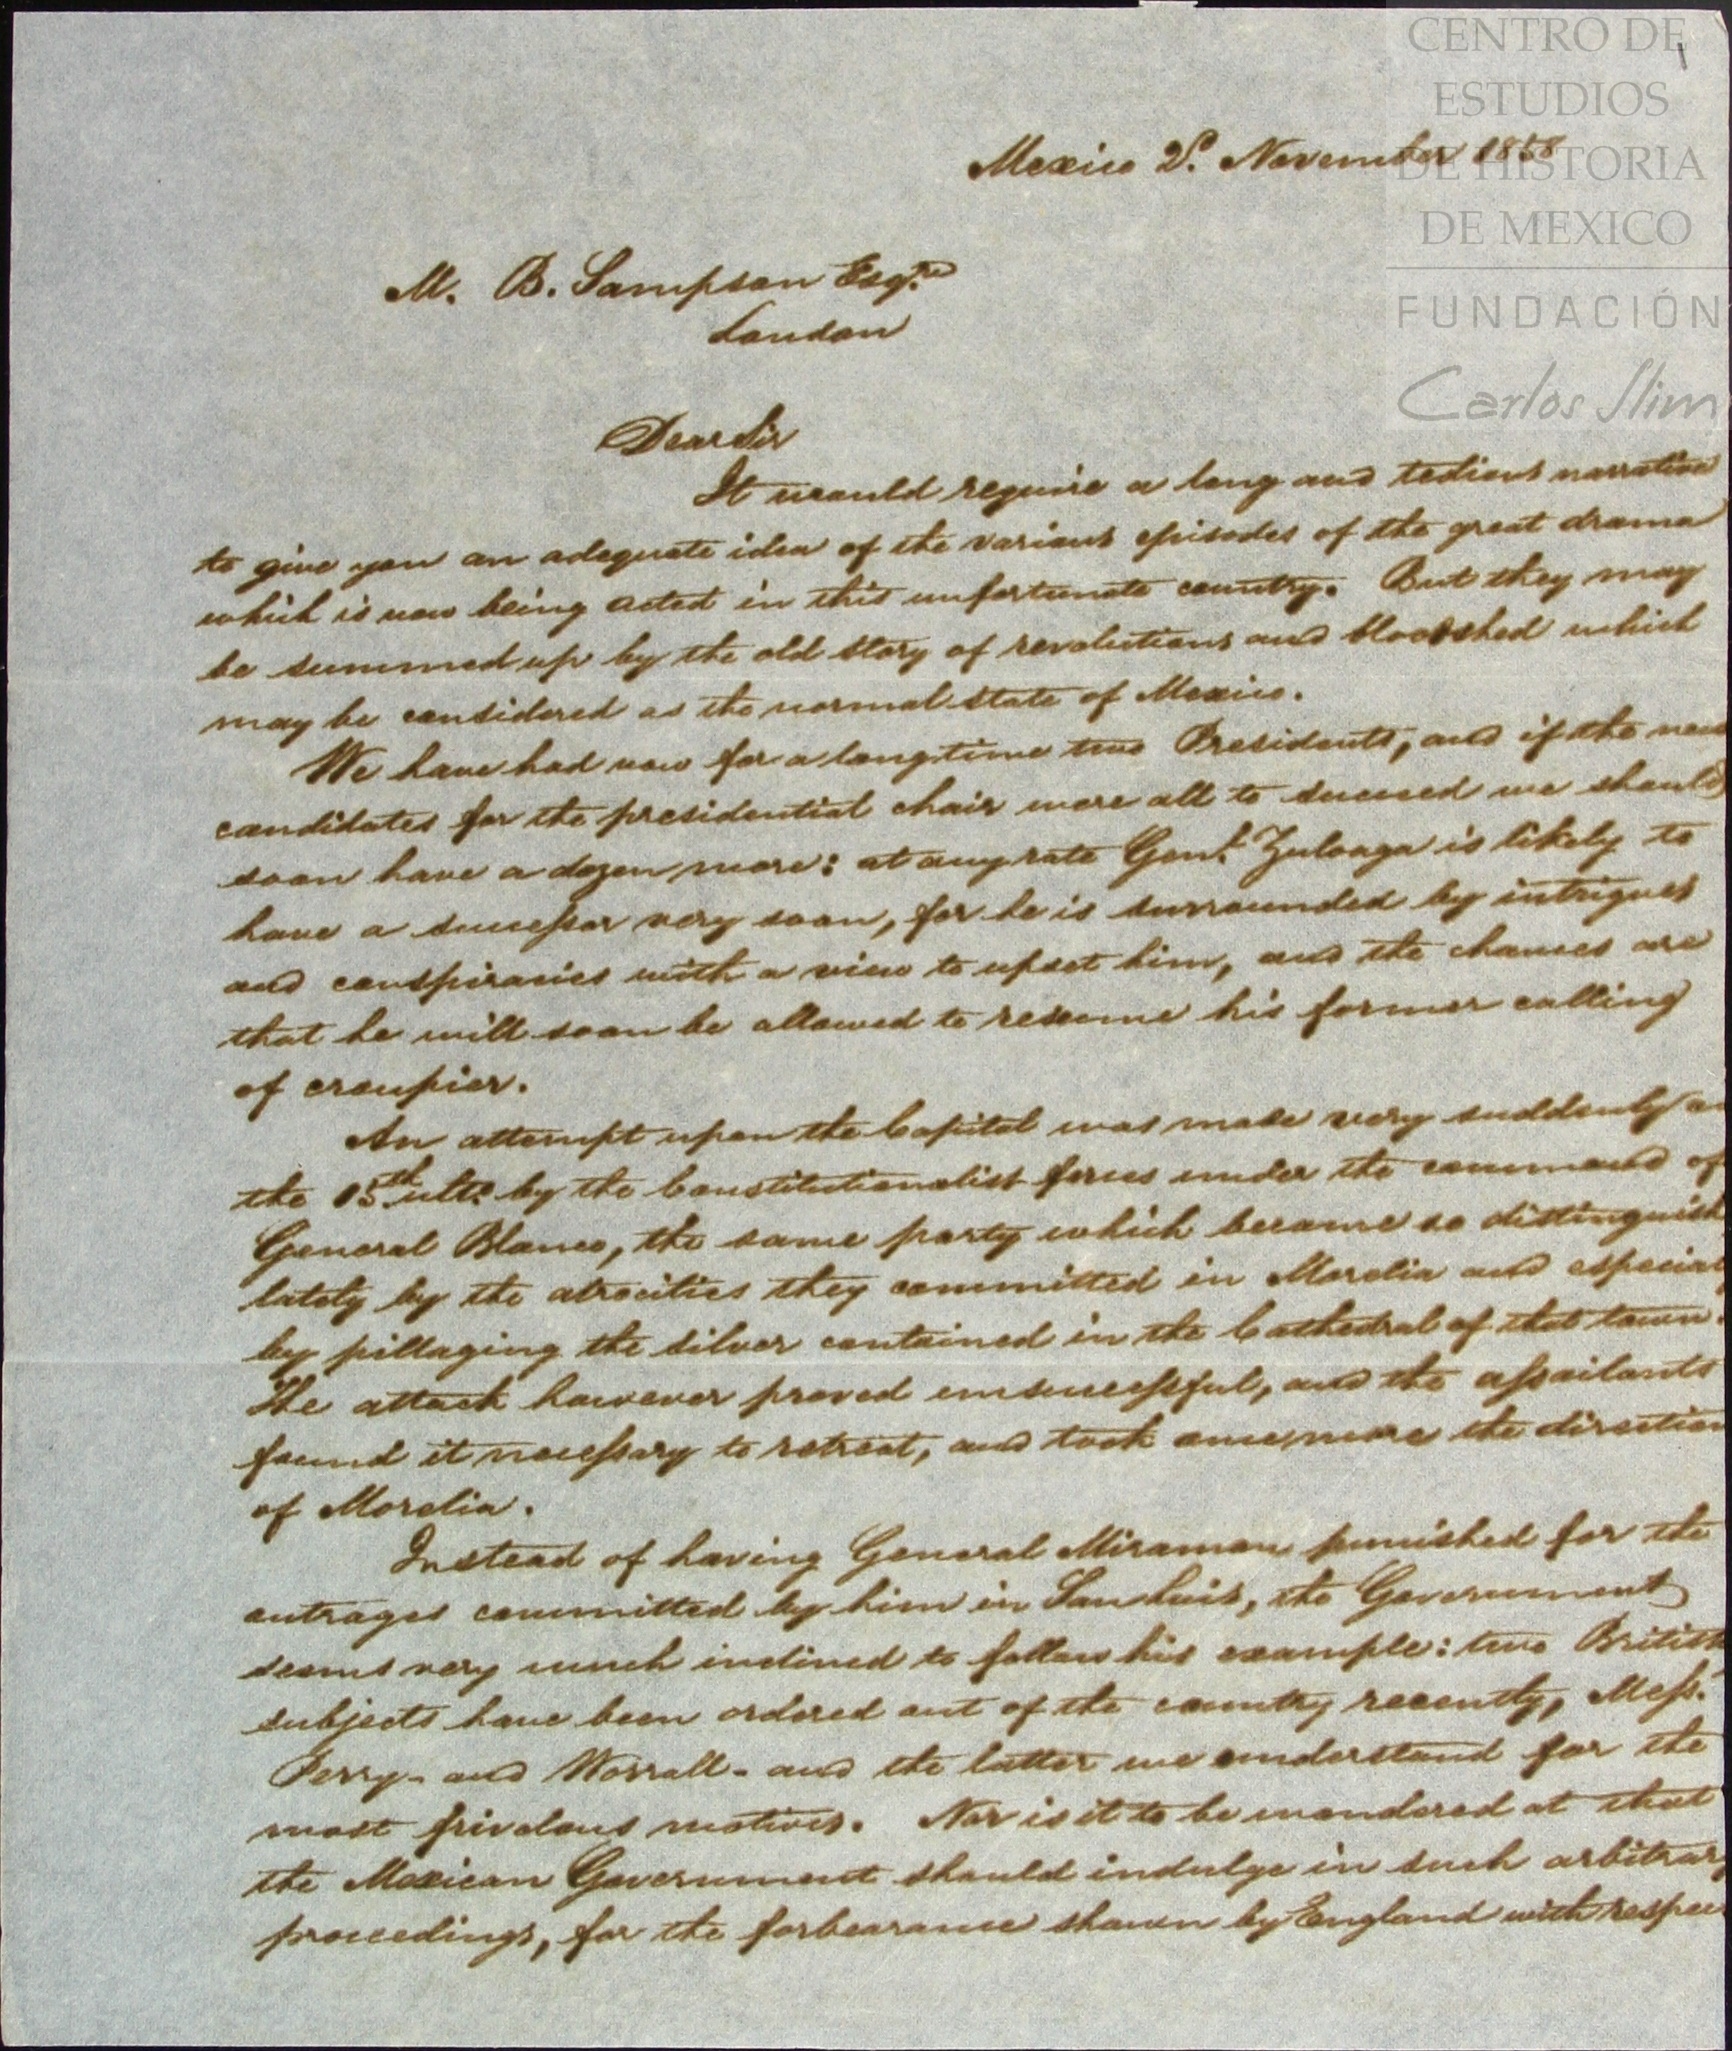 CENTRO DE
ESTUDIOS
DE HISTORIA
DE MEXICO
FUNDACIÓN
Carlos Slim
1
Mexico 2d. November 1858
M. B. Sampson Esqre.
London
Dear Sir
It would require a long and tedious narrative
to give you an adequate idea of the various episodes of the great drama
which is now being acted in this unfortunate country. But they may
be summed up by the old story of revolutions and bloodshed which
may be considered as the normal state of Mexico.
We have had now for a long time two Presidents, and if the new
candidates for the presidential chair were all to succeed we should
soon have a dozen more: at any rate Genl. Zuloaga is likely to
have a successor very soon, for he is surrounded by intrigues
and conspiracies with a view to upset him, and the chances are
that he will soon be allowed to resume his former calling
of croupier.
An attempt upon the Capital was made very suddenly on
the 15th ulto. by the Constitutionalist forces under the command of
General Blanco, the same party which became so distinguish
lately by the atrocities they committed in Morelia and especial
by pillaging the silver contained in the Cathedral of that town.
The attack however proved unsuccessful, and the assailants
found it necessary to retreat, and took once more the direction
of Morelia.
Instead of having General Miramon punished for the
outrages committed by him in San Luis, the Government
seems very much inclined to follow his example: two British
subjects have been ordered out of the country recently, Mess.
Perry - and Worrall - and the latter we understand for the
most frivolous motives. Nor is it to be wondered at that
the Mexican Government should indulge in such arbitrary
proceedings, for the forbearance shown by England with respec